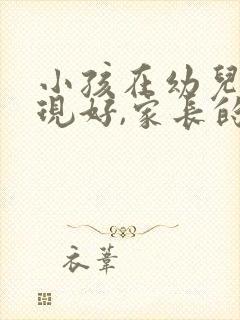 小孩在幼兒
現好,家長的
衣葦